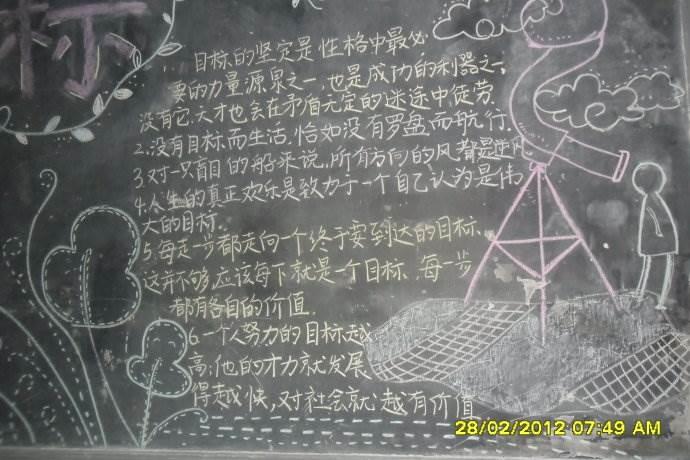 标
1. 目标的坚定是性格中最必
要的力量源泉之一,也是成功的利器之一,
没有它,天才也会在矛盾无定的迷途中徒劳
2.没有目标而生活,恰如没有罗盘而航行.
3.对一只盲目的船来说,所有方向的风都是逆风
4.人生的真正欢乐是致力于一个自己认为是伟
大的目标
5.每走一步都走向一个终于要到达的目标,
这并不够,应该每下就是一个目标,每一步
都有各自的价值.
6.一个人努力的目标越
高,他的才力就发展
得越快,对社会就越有价值
28/02/2012 07:49 AM